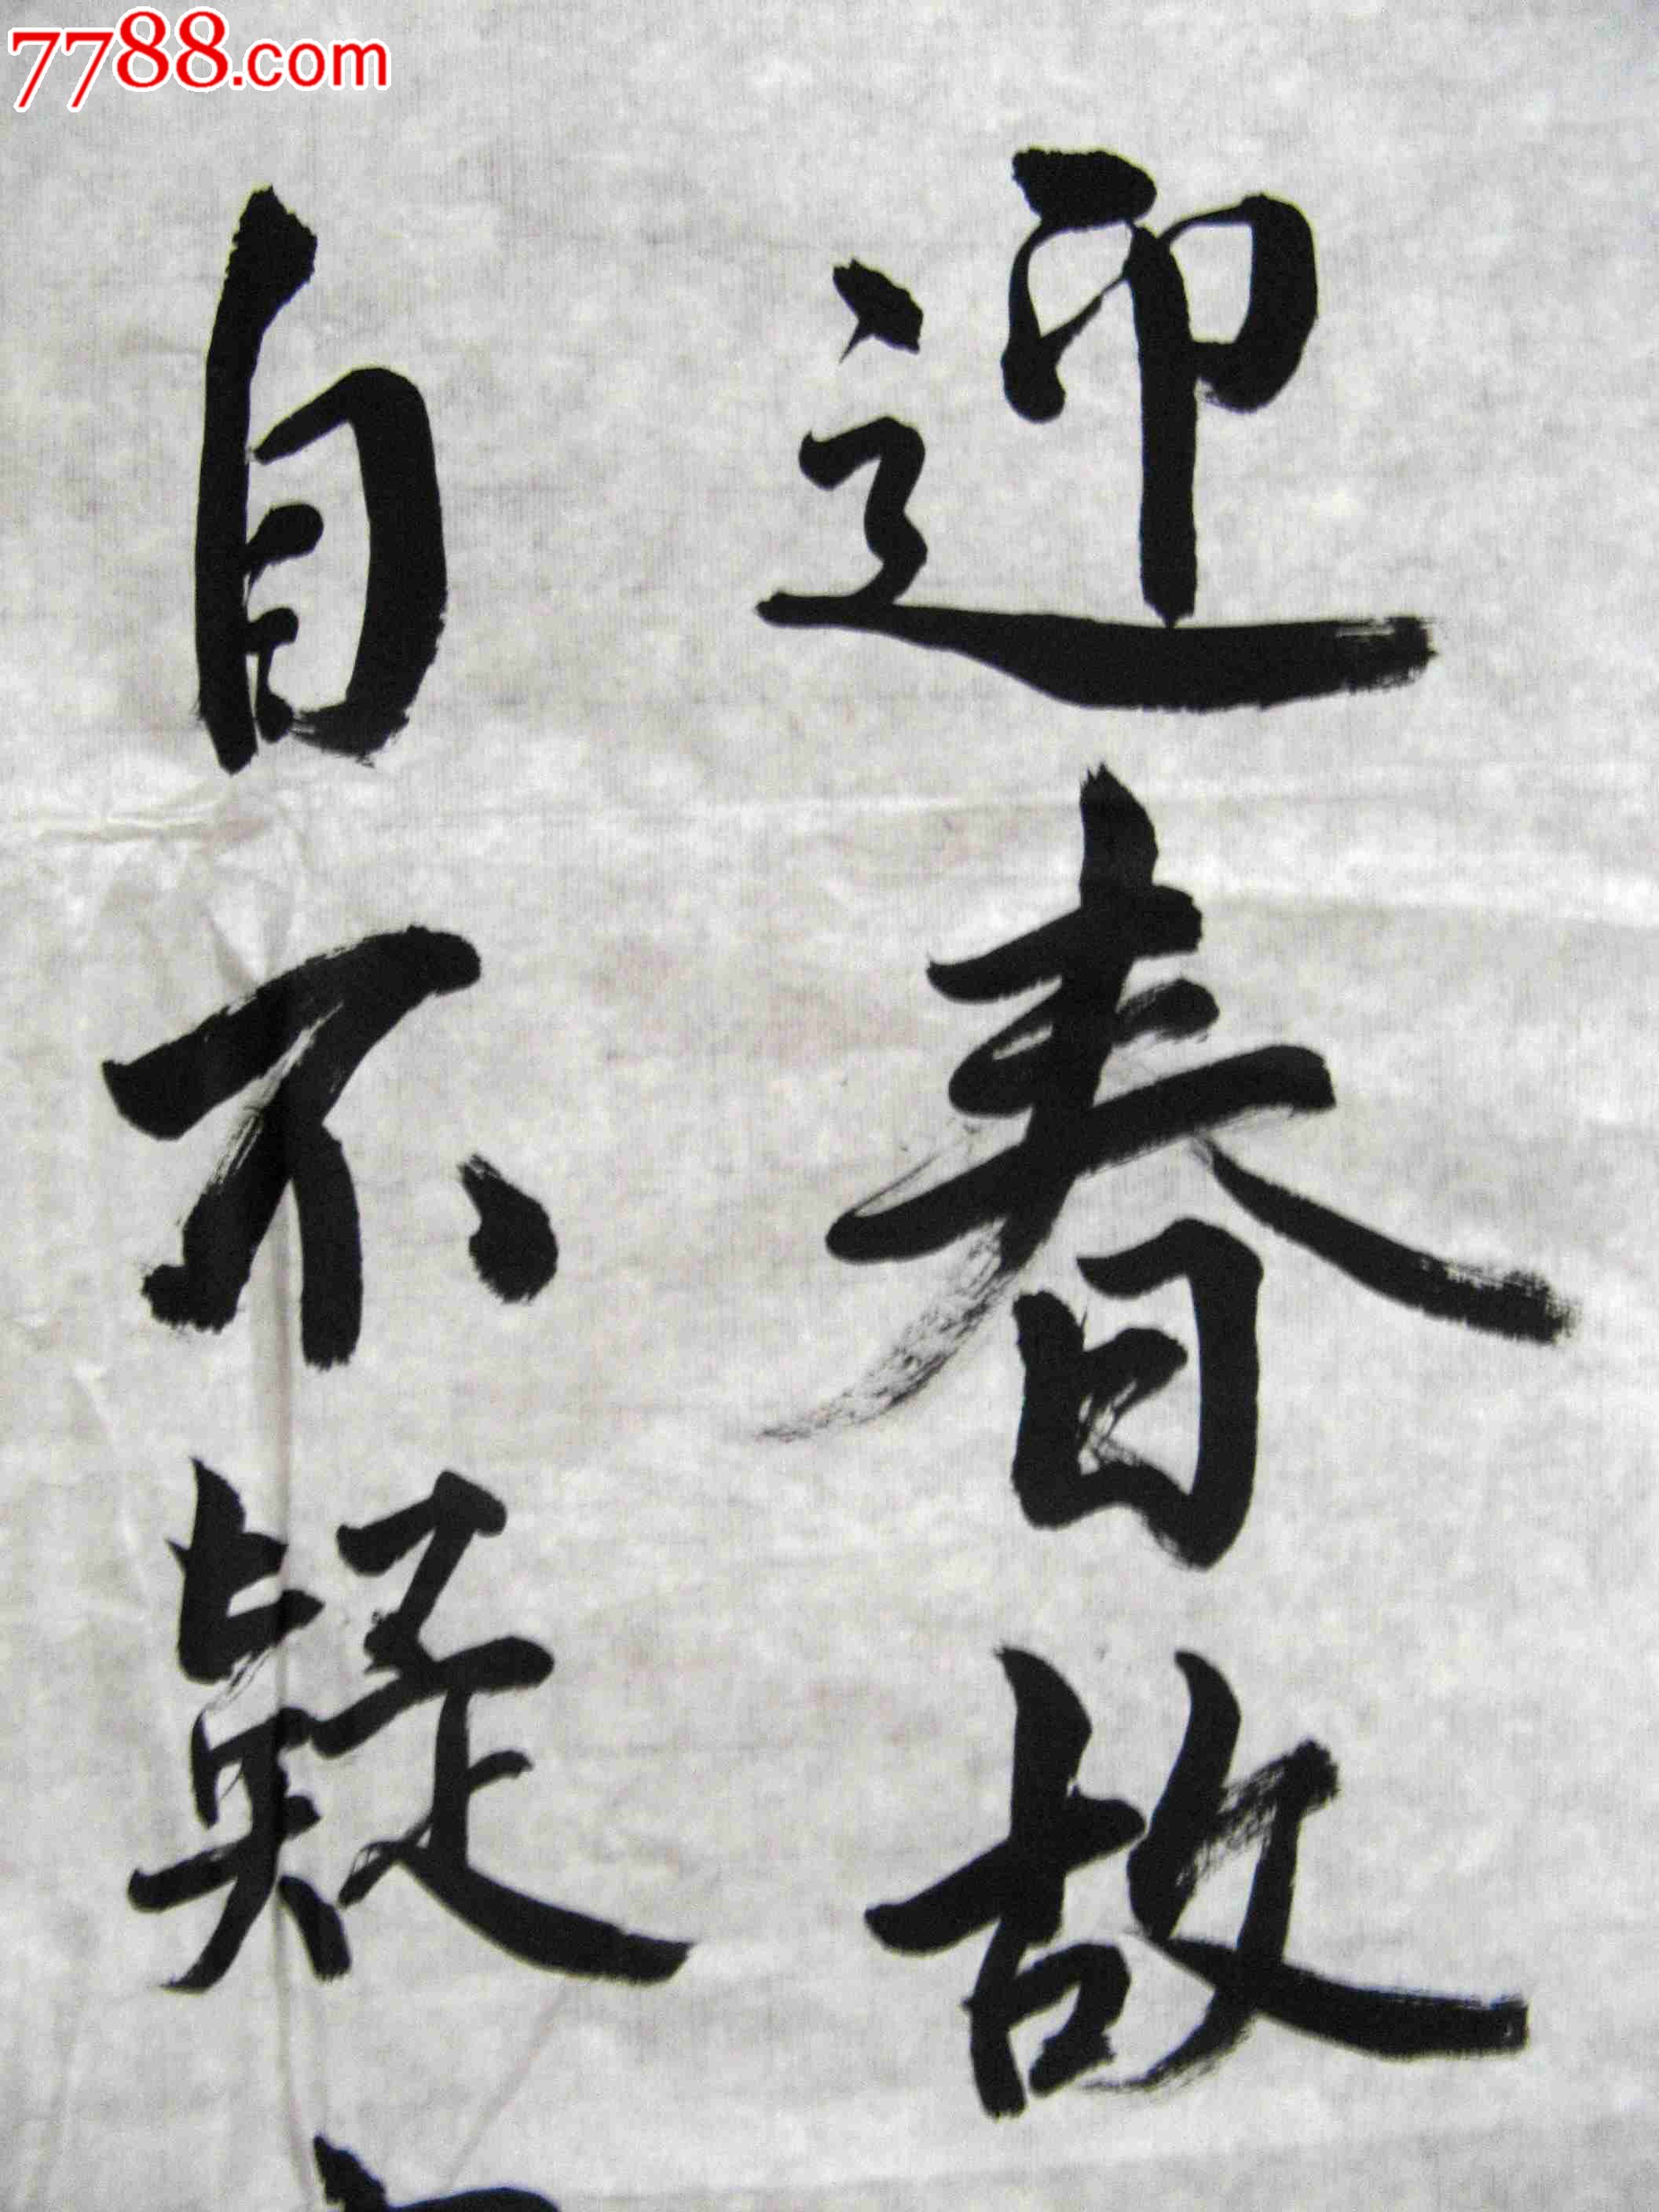 7788.com
迎春故
自不疑